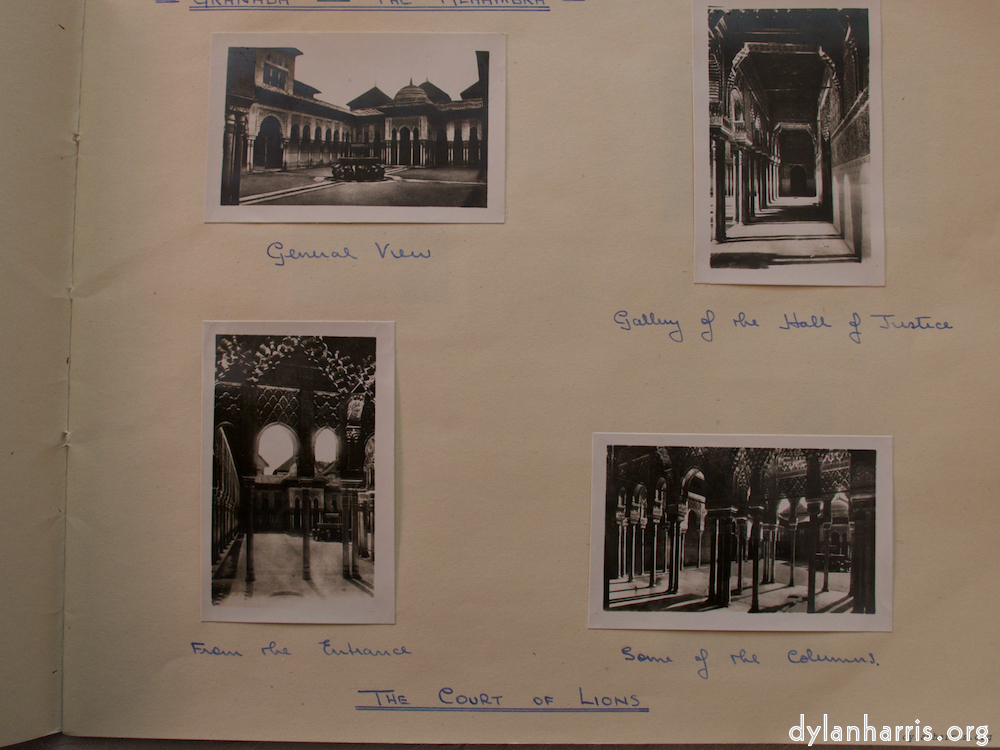 GRANADA — THE ALHAMBRA
General View
Gallery of the Hall of Justice
From the Entrance
Some of the Columns.
THE COURT OF LIONS
dylanharris.org